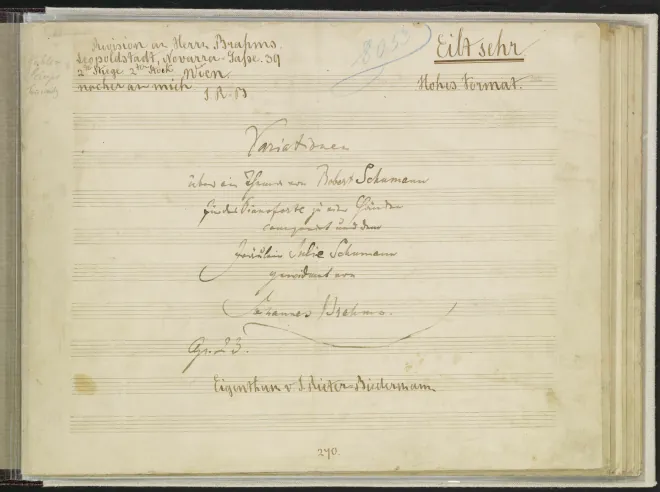 Revision an Herrn Brahms.
Leopoldstadt, Novarra-Gasse. 39
2te Stiege 2ter Stock Wien.
nachher an mich
J. R-B
8053
Eilt sehr.
Hohes Format.
Variationen
über ein Thema von Robert Schumann
für das Pianoforte zu vier Händen
componirt und dem
Fräulein Julie Schumann
gewidmet von
Johannes Brahms.
Op. 23.
Eigenthum v. J. Rieter-Biedermann
270.